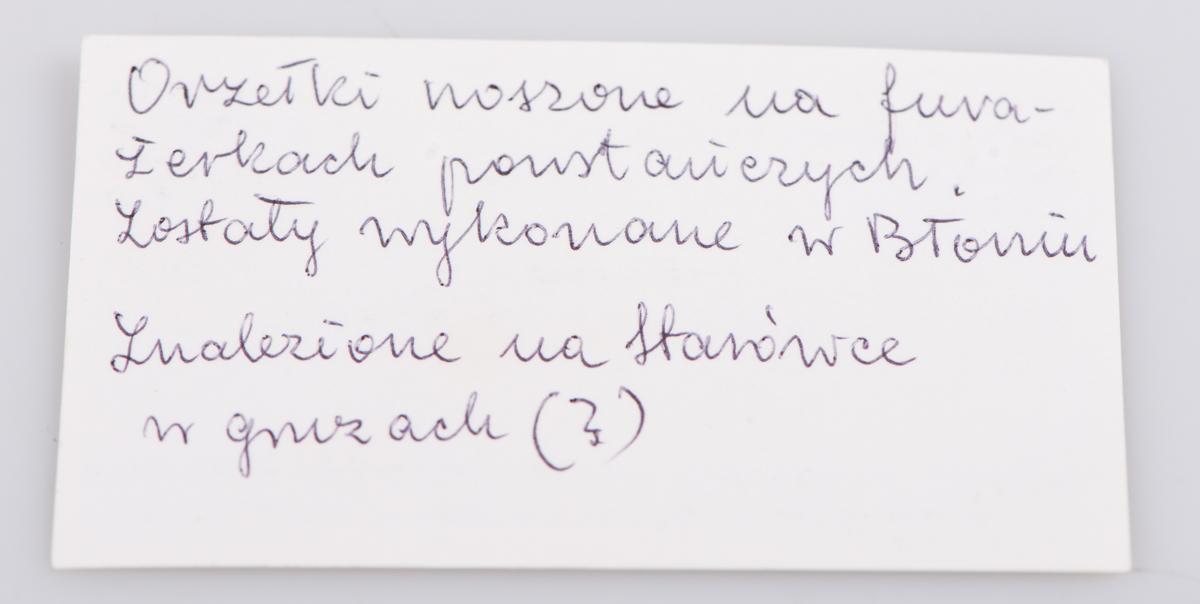 Orzełki noszone na fura-
żerkach powstańczych.
Zostały wykonane w Błoniu
Znalezione na Starówce
w gruzach (?)